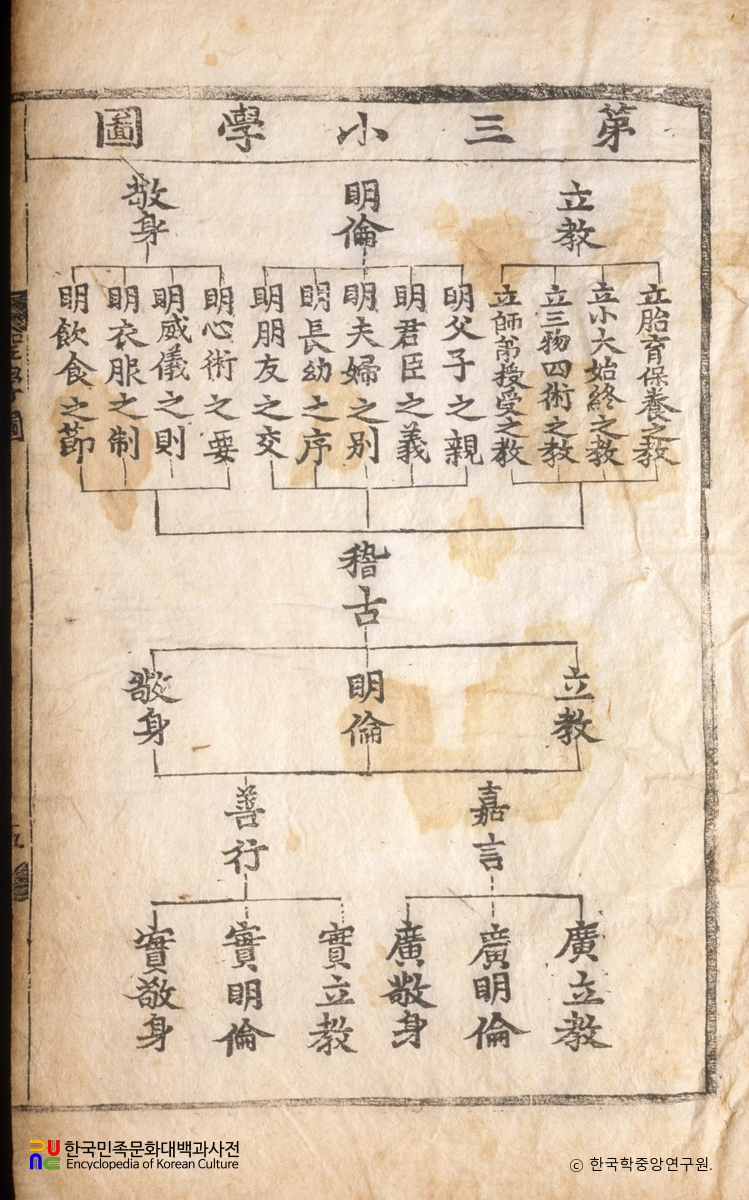 第三小學圖
立教
明倫
敬身
立胎育保養之教
立小大始終之教
立三物四術之教
立師弟授受之教
明父子之親
明君臣之義
明夫婦之別
明長幼之序
明朋友之交
明心術之要
明威儀之則
明衣服之制
明飲食之節
稽古
立教
明倫
敬身
嘉言
善行
廣立教
廣明倫
廣敬身
實立教
實明倫
實敬身
한국민족문화대백과사전
Encyclopedia of Korean Culture
ⓒ 한국학중앙연구원.